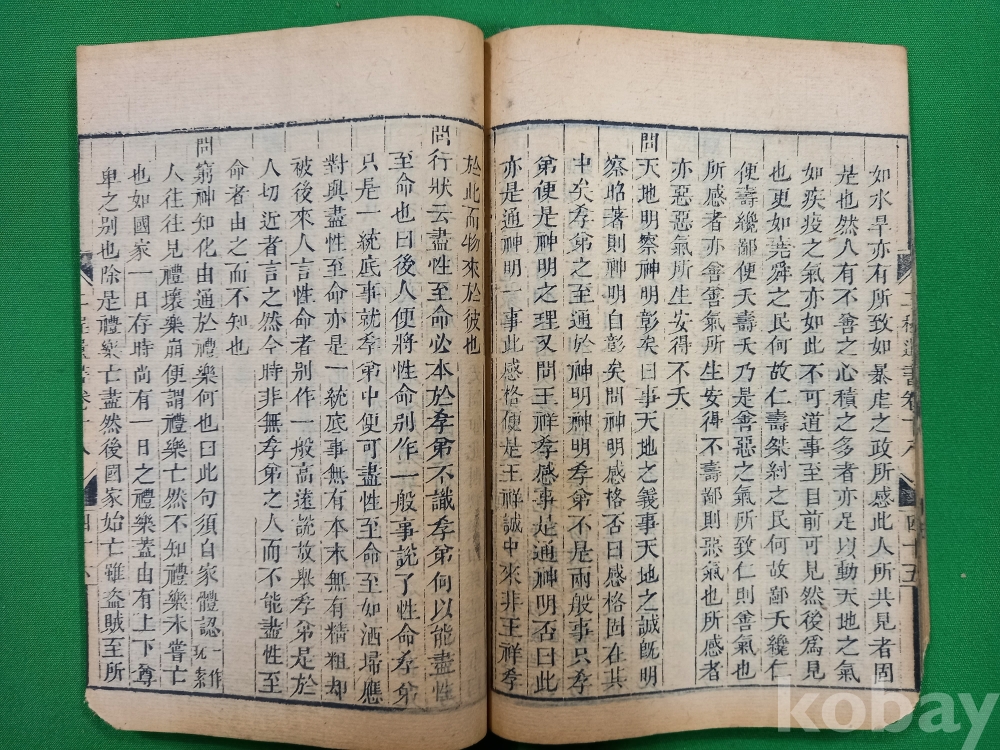 如水旱亦有所致如暴虐之政所感此人所共見者固
是也然人有不善之心積之多者亦足以動天地之氣
如疾疫之氣亦如此不可道事至目前可見然後爲見
也更如堯舜之民何故仁壽桀紂之民何故鄙夭纔仁
便壽纔鄙便夭壽夭乃是善惡之氣所致仁則善氣也
所感者亦善善氣所生安得不壽鄙則惡氣也所感者
亦惡惡氣所生安得不夭
問天地明察神明彰矣曰事天地之義事天地之誠旣明
察昭著則神明自彰矣問神明感格否曰感格固在其
中矣孝弟之至通於神明神明孝弟不是兩般事只孝
弟便是神明之理又問王祥孝感事是通神明否曰此
亦是通神明一事此感格便是王祥誠中來非王祥孝
二程遺書卷十八
四十五
於此而物來於彼也
問行狀云盡性至命必本於孝弟不識孝弟何以能盡性
至命也曰後人便將性命別作一般事說了性命孝弟
只是一統底事就孝弟中便可盡性至命至如洒埽應
對與盡性至命亦是一統底事無有本末無有精粗却
被後來人言性命者別作一般高遠說故舉孝弟是於
人切近者言之然今時非無孝弟之人而不能盡性至
命者由之而不知也
問窮神知化由通於禮樂何也曰此句須自家體認一作玩索
人往往見禮壞樂崩便謂禮樂亡然不知禮樂未嘗亡
也如國家一日存時尚有一日之禮樂蓋由有上下尊
卑之別也除是禮樂亡盡然後國家始亡雖盜賊至所
kobay